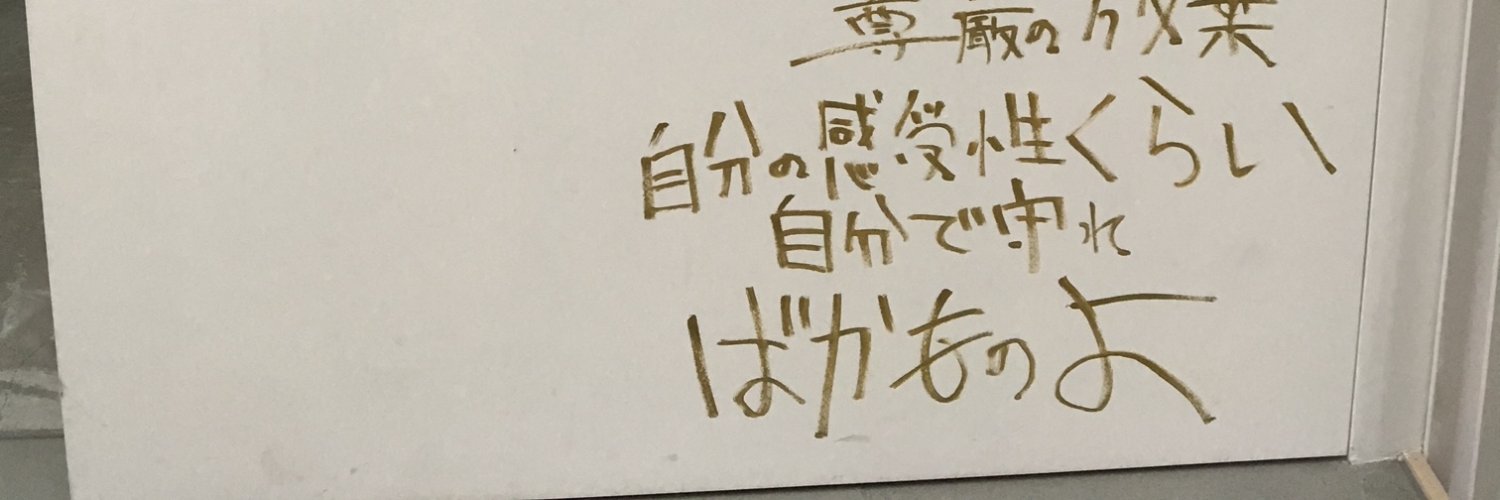 尊厳の放棄
自分の感受性くらい
自分で守れ
ばかものよ